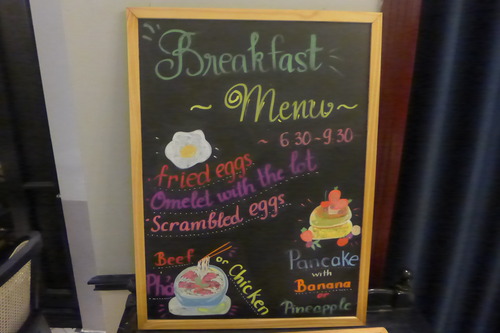 Breakfast
~ Menu ~
~ 6 30 - 9.30
fried eggs
Omelet with the lot
Scrambled eggs
Beef or Chicken
Pho
Pancake
with
Banana
or
Pineapple